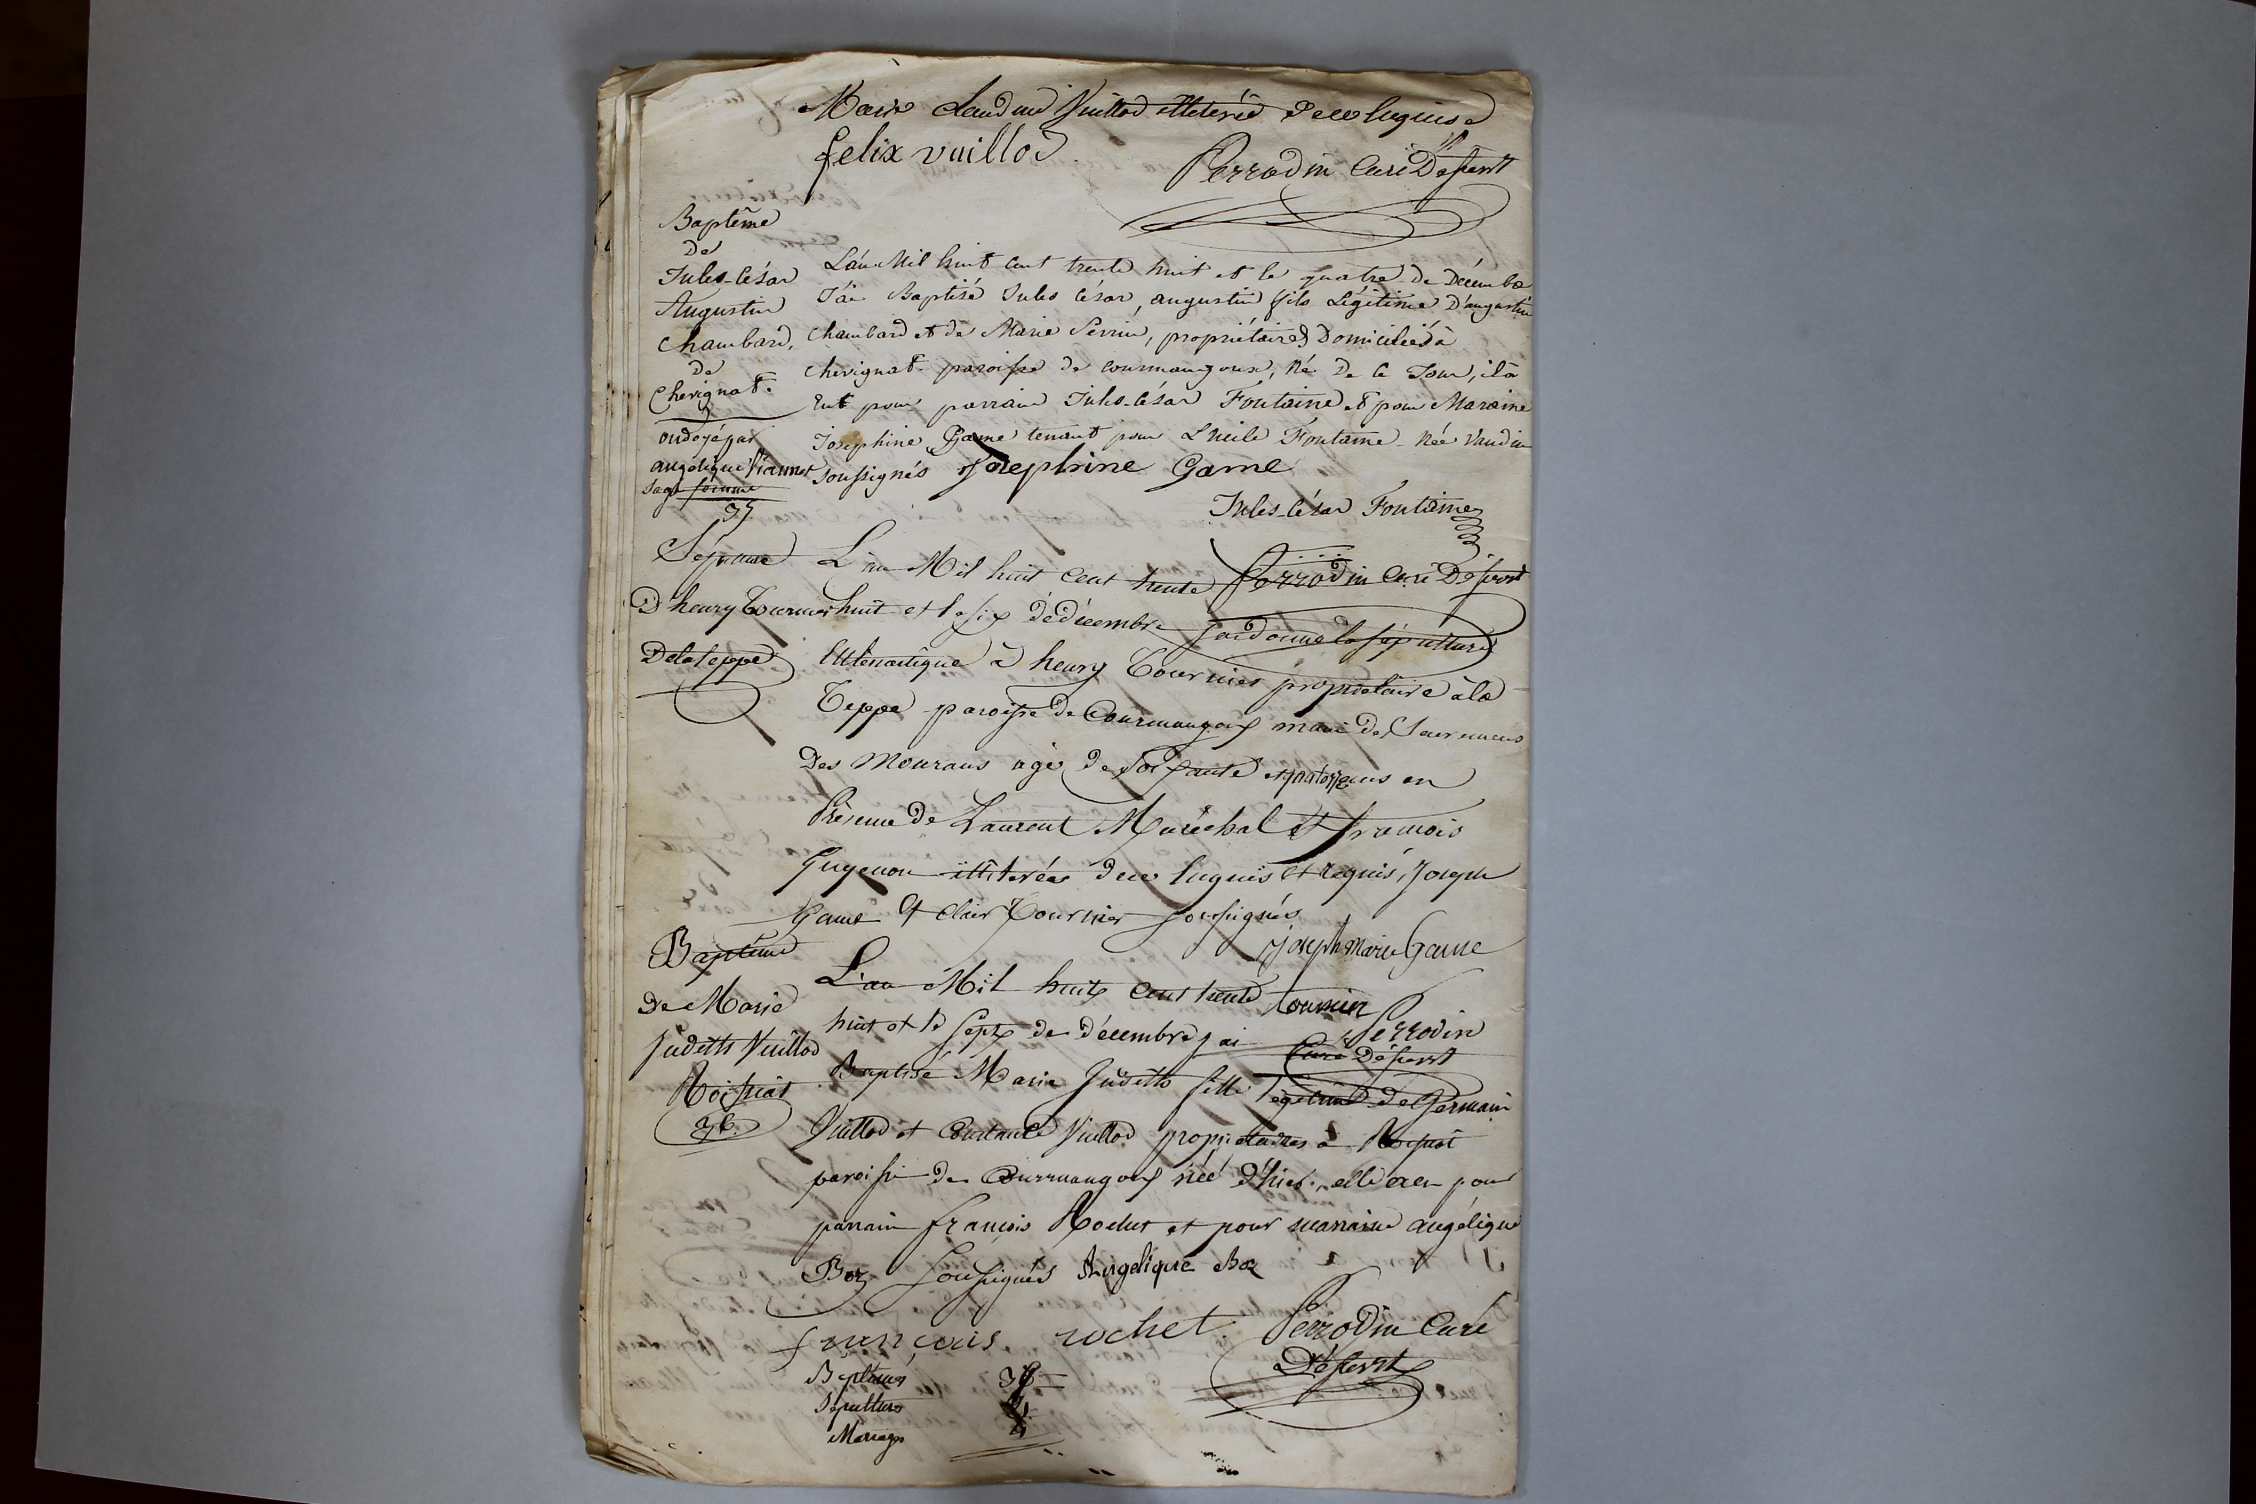 Marie Claudine Vuillod illeterée dece enquise
felix vuillod
Perrodin Curé Désservt
Baptême
De
Jules-César
Augustin
Chambard,
De
Chevignat.
ondoyé par
angélique Viannet
Sage femme
37
L'an Mil huit cent trente huit et le quatre de Décembre
J'ai Baptisé Jules César, augustin fils Légitime D'augustin
Chambard et de Marie Perrin, propriétaires Domiciliés à
Chevignat paroisse de courmangoux, Né De ce Jour, il a
Eut pour parrain Jules-César Fontaine et pour Maraine
Josephine Game tenant pour Fontaine Née Vaudin
Soussignés Josephine Game
Jules-César Fontaine
Perrodin Curé Désservt
Sépulture
D'henry Tournier
Delateppe
L'an Mil huit cent trente
huit et le six de décembre j'ai donné la sépulture
Eclésiastique à henry Tournier propriétaire à la
Teppe paroisse de Courmangoux muni des Sacremens
Des Mourans agé de Soixante et quatorze ans en
Présence de Laurent Maréchal et francois
Guyenon illiterées dece enquis et requis, Joseph
Game et Clair Tournier soussignés
joseph marie Game
tournier
Perrodin
Curé Désservt
Baptême
De Marie
Judette Vuillod
Roissiat
38
L'an Mil huit cent trente
huit et le sept de décembre j'ai
Baptisé Marie Judette fille légetime de Germain
Vuillod et Constance Vuillod propriétaires à Roissiat
paroisse de Courmangoux née d'hier, elle a eu pour
parrain françois Rochet et pour marraine angélique
Boz Soussignés Angelique Boz
françois rochet
Perrodin Curé
Désservt
Baptêmes 38
Sépultures
Mariages